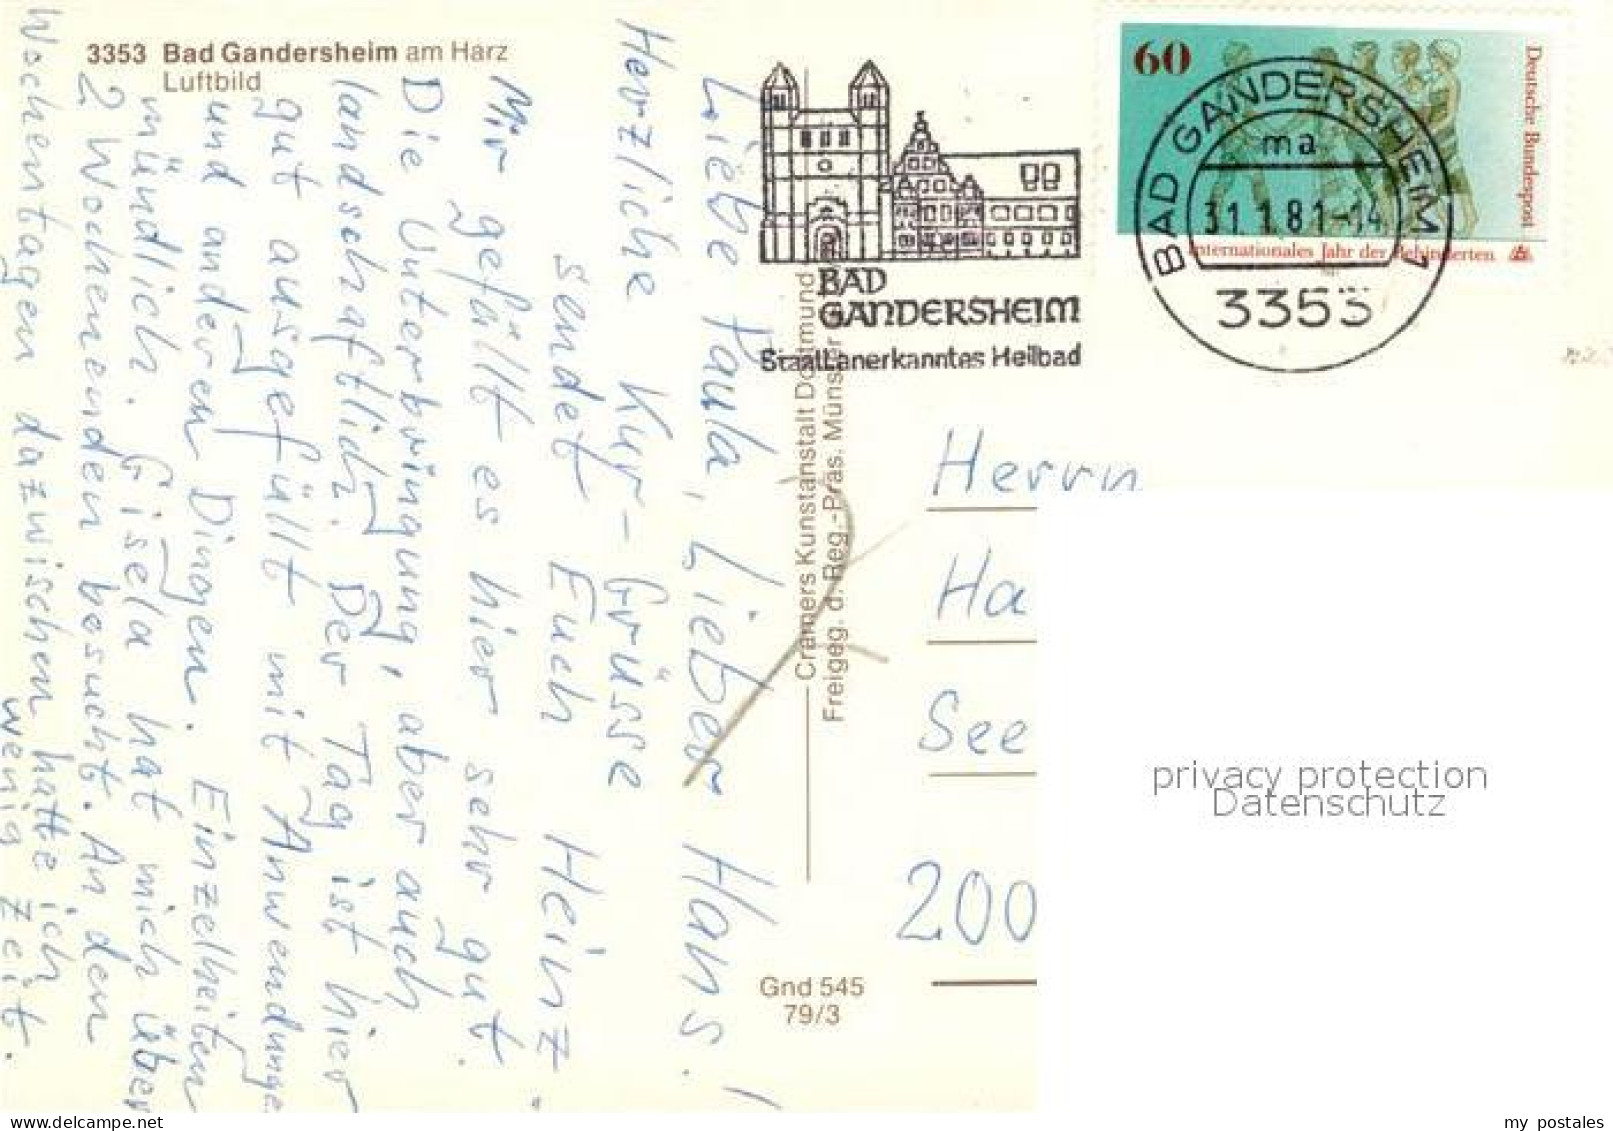 3353 Bad Gandersheim am Harz
Luftbild
Liebe Paula, Lieber Hans!
Herzliche Kur-Grüsse
sendet Euch Heinz
Mir gefällt es hier sehr gut.
Die Unterbringung, aber auch
landschaftlich. Der Tag ist hier
gut ausgefüllt mit Anwendungen
und anderen Dingen. Einzelheiten
mündlich. Gisela hat mich über
2 Wochenenden besucht. An den
Wochentagen dazwischen hatte ich
wenig Zeit.
Cramers Kunstanstalt Dortmund
Freigeg. d. Reg.-Präs. Münster
Gnd 545
79/3
BAD
GANDERSHEIM
Staatl. anerkanntes Heilbad
60
Deutsche Bundespost
Internationales Jahr der Behinderten
BAD GANDERSHEIM 1
ma
31.1.81-14
3353
Herrn
Ha
See
200
privacy protection
Datenschutz
www.delcampe.net
my postales